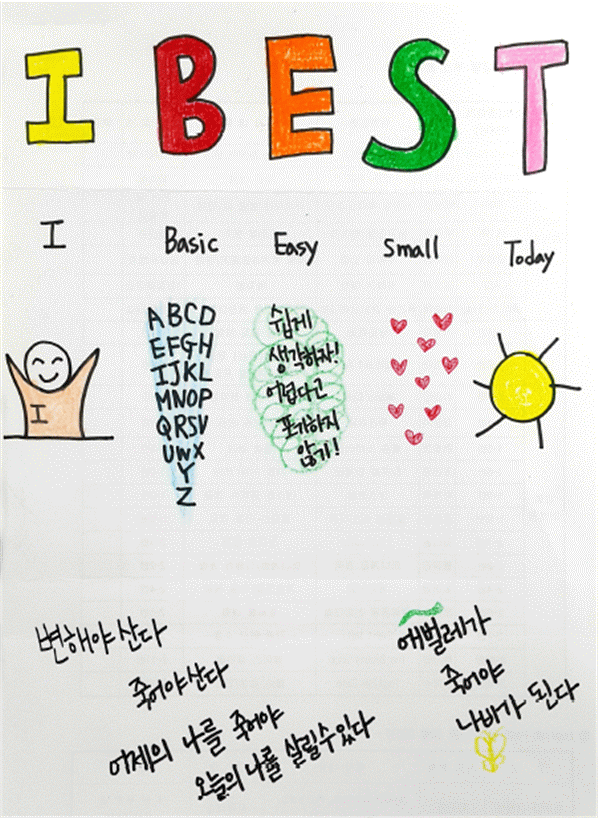 I BEST
I Basic Easy Small Today
I
ABCD
EFGH
IJKL
MNOP
QRSV
UWX
Y
Z
쉽게
생각하자!
어렵다고
포기하지
않기!
변해야 산다
죽어야 산다
어제의 나를 죽어야
오늘의 나를 살릴수있다
애벌레가
죽어야
나비가 된다